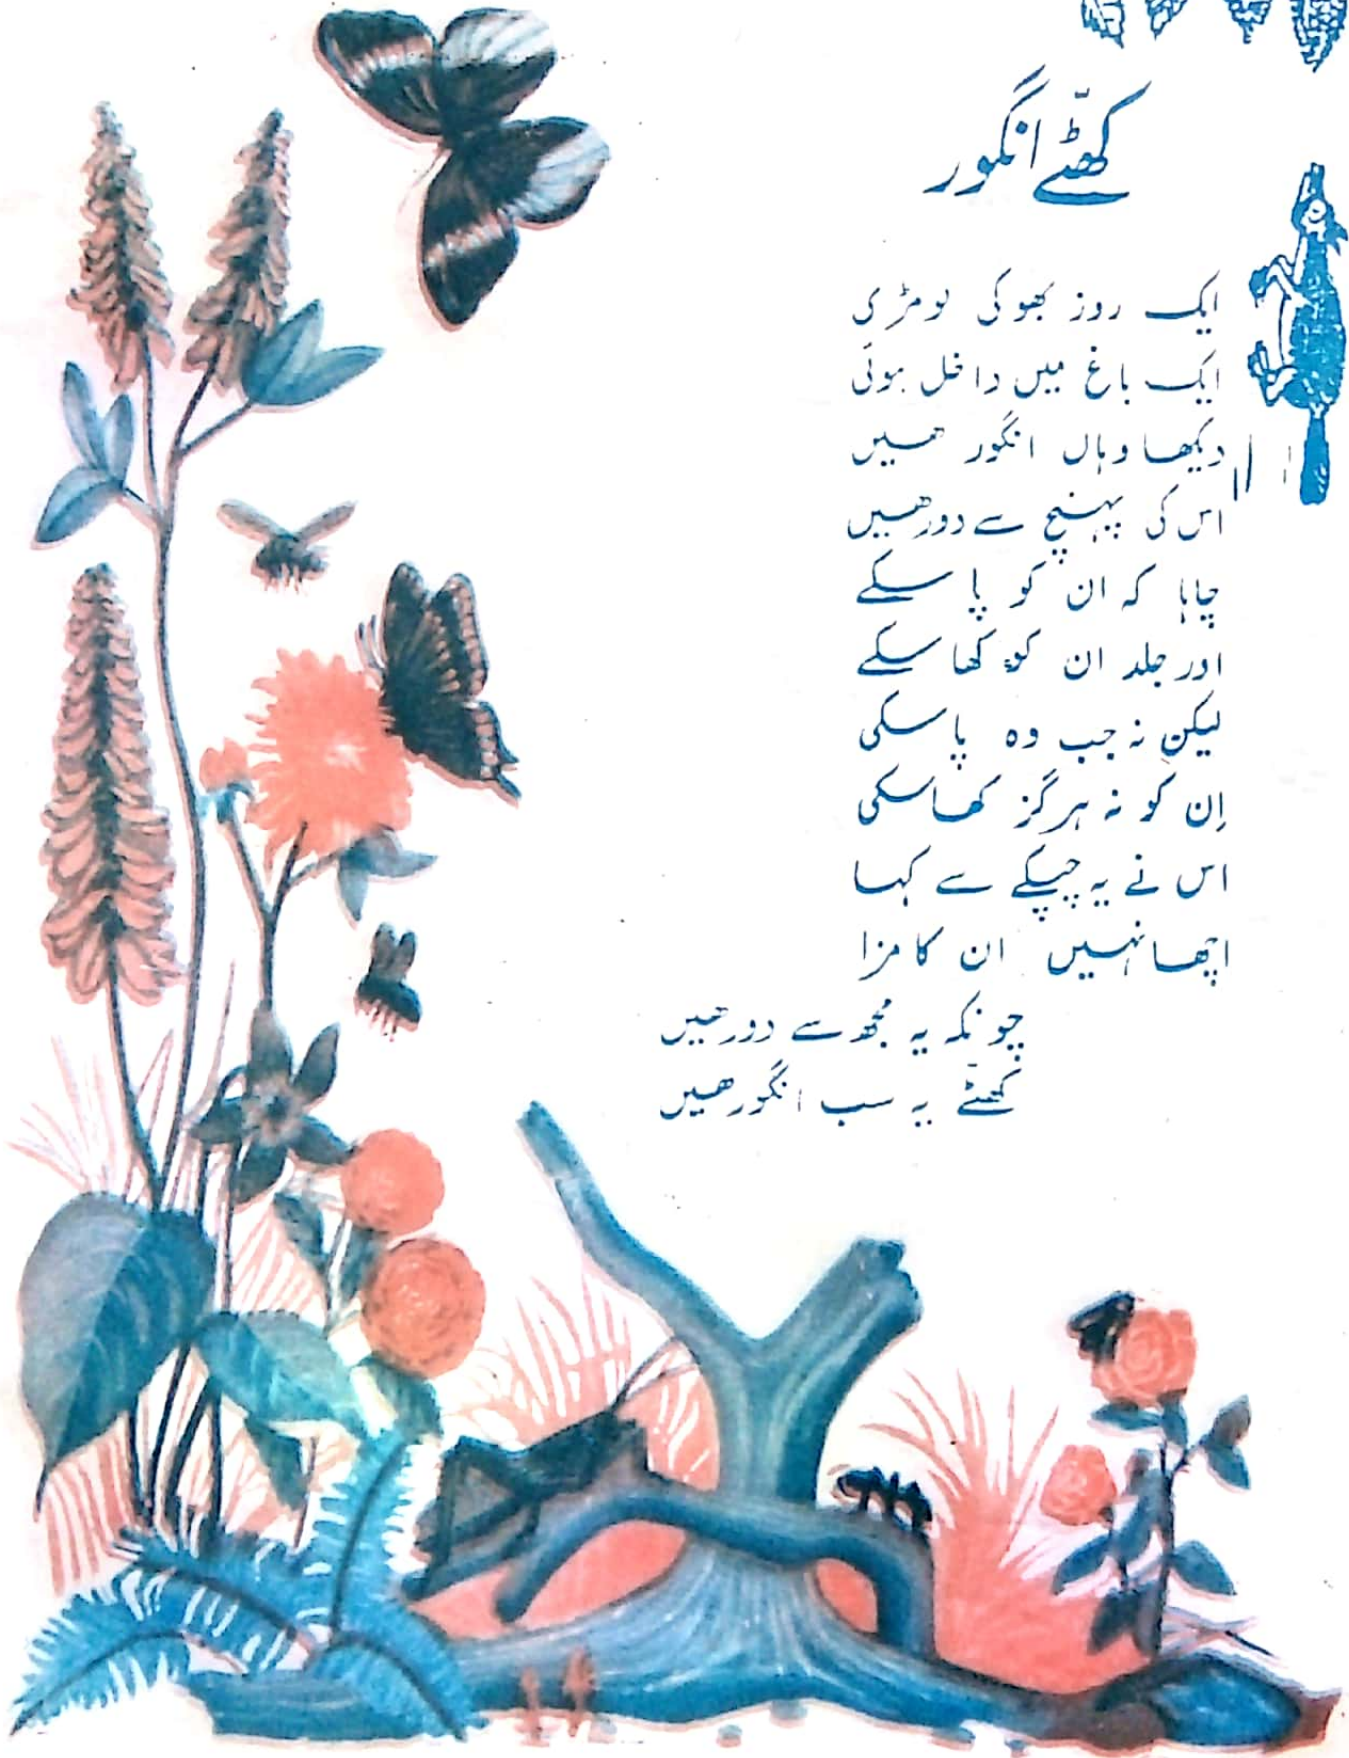 کھٹّے انگور
ایک روز بھوکی لومڑی
ایک باغ میں داخل ہوئی
دیکھا وہاں انگور ھیں
اس کی پہنچ سے دور ھیں
چاہا کہ ان کو پا سکے
اور جلد ان کو کھا سکے
لیکن نہ جب وہ پا سکی
اِن کو نہ ہرگز کھا سکی
اس نے یہ چپکے سے کہا
اچھا نہیں ان کا مزا
چونکہ یہ مجھ سے دور ھیں
کھٹّے یہ سب انگور ھیں